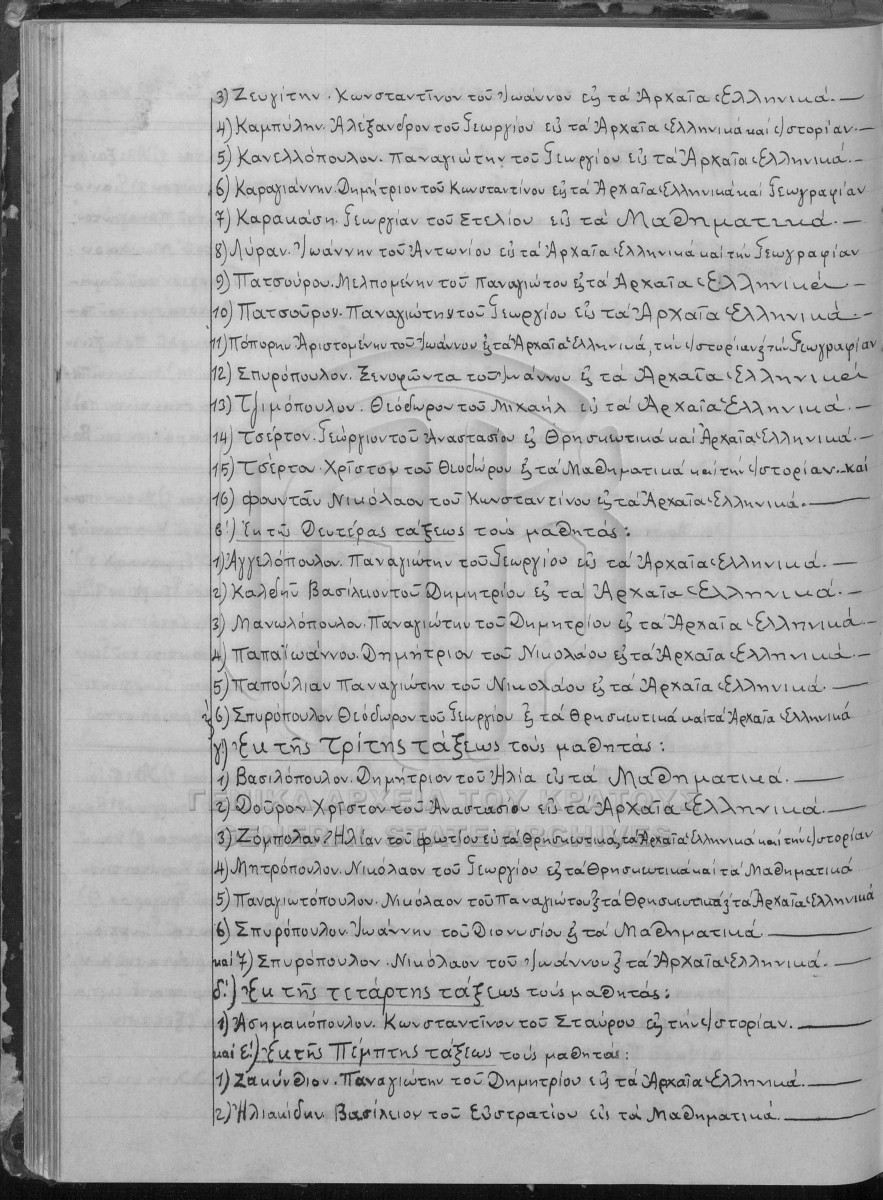 3) Ζευγίτην. Κωνσταντῖνον τοῦ Ἰωάννου εἰς τά Ἀρχαῖα Ἑλληνικά.—
4) Καμπύλην. Ἀλέξανδρον τοῦ Γεωργίου εἰς τά Ἀρχαῖα Ἑλληνικά καί Ἱστορίαν.—
5) Κανελλόπουλον. Παναγιώτην τοῦ Γεωργίου εἰς τά Ἀρχαῖα Ἑλληνικά.—
6) Καραγιάννην. Δημήτριον τοῦ Κωνσταντίνου εἰς τά Ἀρχαῖα Ἑλληνικά καί Γεωγραφίαν
7) Καρακάση. Γεωργίαν τοῦ Στελίου εἰς τά Μαθηματικά.—
8) Λύραν. Ἰωάννην τοῦ Ἀντωνίου εἰς τά Ἀρχαῖα Ἑλληνικά καί τήν Γεωγραφίαν
9) Πατσούρου. Μελπομένην τοῦ Παναγιώτου εἰς τά Ἀρχαῖα Ἑλληνικά.—
10) Πατσοῦρον. Παναγιώτην τοῦ Γεωργίου εἰς τά Ἀρχαῖα Ἑλληνικά.—
11) Πόπορην Ἀριστομένην τοῦ Ἰωάννου εἰς τά Ἀρχαῖα Ἑλληνικά, τήν Ἱστορίαν ξ τήν Γεωγραφίαν
12) Σπυρόπουλον. Ξενοφῶντα τοῦ Ἰωάννου εἰς τά Ἀρχαῖα Ἑλληνικά
13) Τζιμόπουλον. Θεόδωρον τοῦ Μιχαήλ εἰς τά Ἀρχαῖα Ἑλληνικά.—
14) Τσέρτον. Γεώργιον τοῦ Ἀναστασίου εἰς Θρησκευτικά καί Ἀρχαῖα Ἑλληνικά.—
15) Τσέρτον. Χρῖστον τοῦ Θεοδώρου εἰς τά Μαθηματικά καί τήν Ἱστορίαν.—καί
16) Φουντᾶν Νικόλαον τοῦ Κωνσταντίνου εἰς τά Ἀρχαῖα Ἑλληνικά.—
β΄) Ἐκ τῆς Δευτέρας τάξεως τούς μαθητάς:
1) Ἀγγελόπουλον. Παναγιώτην τοῦ Γεωργίου εἰς τά Ἀρχαῖα Ἑλληνικά.—
2) Καλεδῆν Βασίλειον τοῦ Δημητρίου εἰς τά Ἀρχαῖα Ἑλληνικά.—
3) Μανωλόπουλον. Παναγιώτην τοῦ Δημητρίου εἰς τά Ἀρχαῖα Ἑλληνικά.—
4) Παπαϊωάννου. Δημήτριον τοῦ Νικολάου εἰς τά Ἀρχαῖα Ἑλληνικά.—
5) Παπούλιαν Παναγιώτην τοῦ Νικολάου εἰς τά Ἀρχαῖα Ἑλληνικά.—
6) Σπυρόπουλον Θεόδωρον τοῦ Γεωργίου εἰς τά Θρησκευτικά καί τά Ἀρχαῖα Ἑλληνικά
γ) Ἐκ τῆς Τρίτης τάξεως τούς μαθητάς:
1) Βασιλόπουλον. Δημήτριον τοῦ Ἠλία εἰς τά Μαθηματικά.—
2) Δοῦρον Χρῖστον τοῦ Ἀναστασίου εἰς τά Ἀρχαῖα Ἑλληνικά.—
3) Ζόμπολαν Ἠλίαν τοῦ Φωτίου εἰς τά Θρησκευτικά, τά Ἀρχαῖα Ἑλληνικά καί τήν Ἱστορίαν
4) Μητρόπουλον. Νικόλαον τοῦ Γεωργίου εἰς τά Θρησκευτικά καί τά Μαθηματικά
5) Παναγιωτόπουλον. Νικόλαον τοῦ Παναγιώτου εἰς τά Θρησκευτικά ξ τά Ἀρχαῖα Ἑλληνικά
6) Σπυρόπουλον. Ἰωάννην τοῦ Διονυσίου εἰς τά Μαθηματικά.—
καί 7) Σπυρόπουλον. Νικόλαον τοῦ Ἰωάννου εἰς τά Ἀρχαῖα Ἑλληνικά.—
δ΄) Ἐκ τῆς τετάρτης τάξεως τούς μαθητάς:
1) Ἀσημακόπουλον. Κωνσταντῖνον τοῦ Σταύρου εἰς τήν Ἱστορίαν.—
καί Ε΄) Ἐκ τῆς Πέμπτης τάξεως τούς μαθητάς:
1) Ζακύνθιον. Παναγιώτην τοῦ Δημητρίου εἰς τά Ἀρχαῖα Ἑλληνικά.—
2) Ἠλιακίδην. Βασίλειον τοῦ Εὐστρατίου εἰς τά Μαθηματικά.—
ΓΕΝΙΚΑ ΑΡΧΕΙΑ ΤΟΥ ΚΡΑΤΟΥΣ
GENERAL STATE ARCHIVES